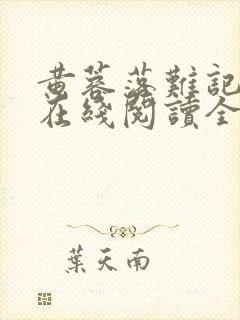 黄蓉落難記
在綫閱讀全
葉天南